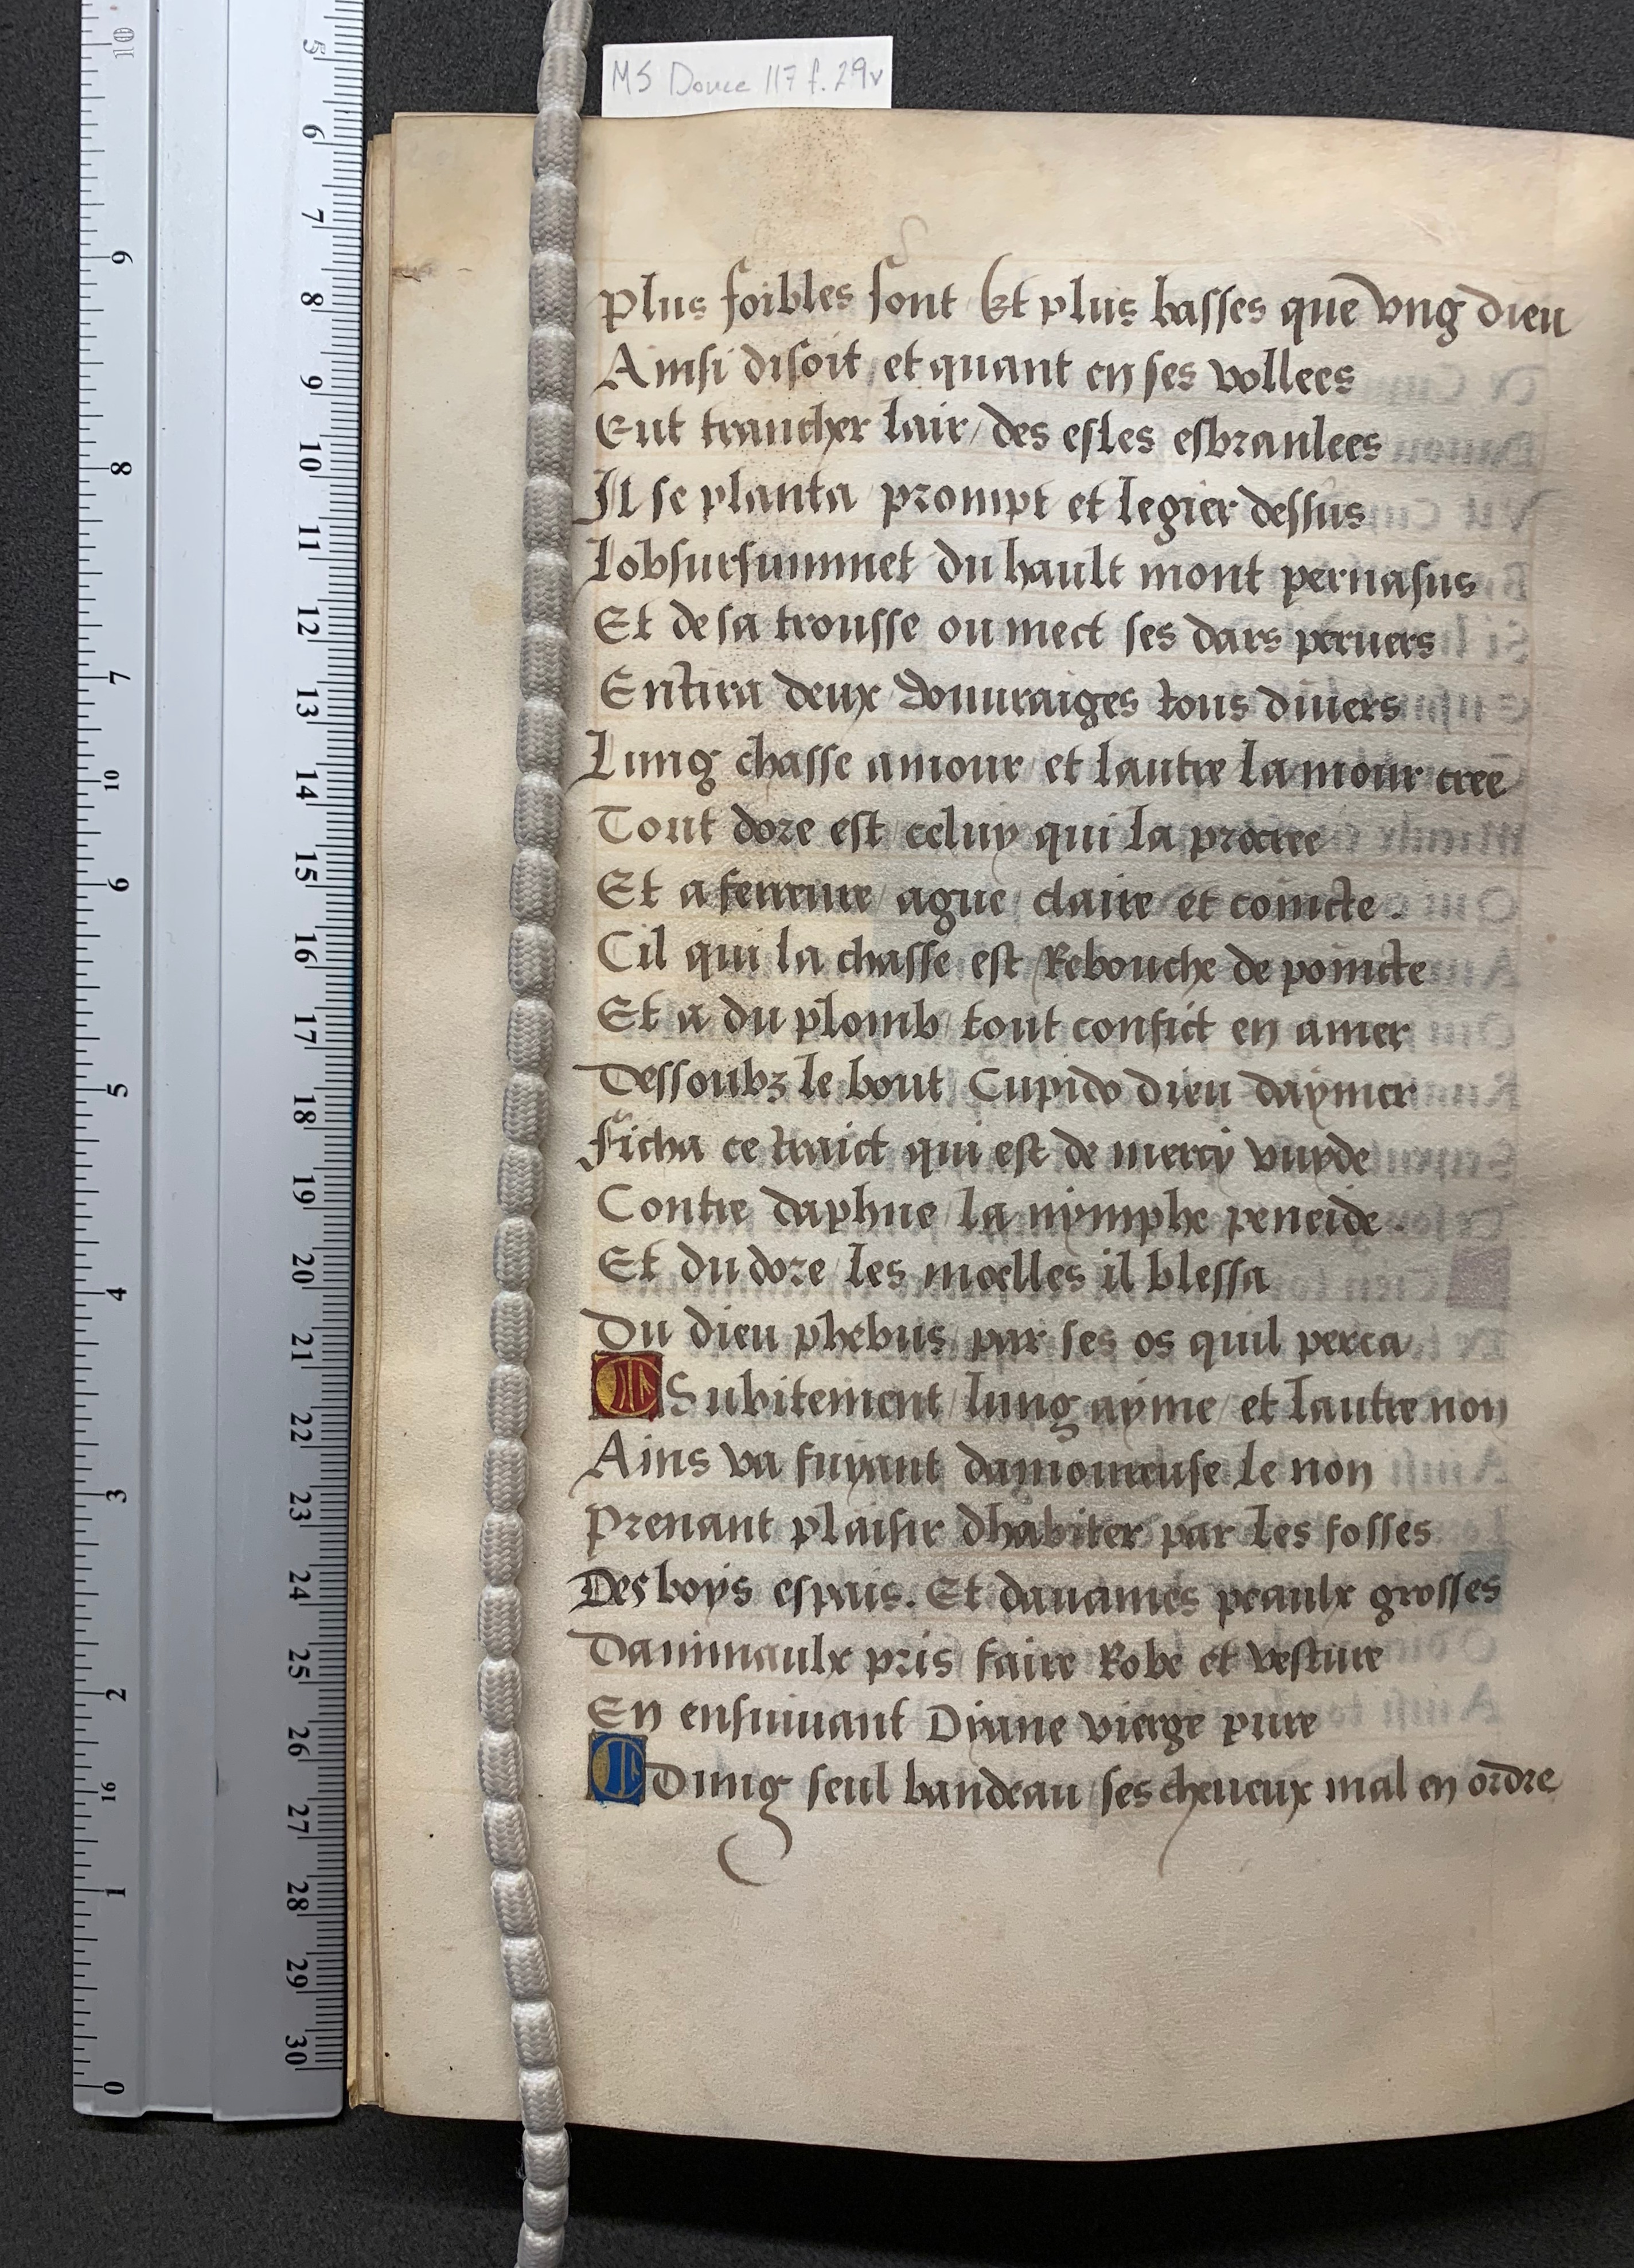 MS Douce 117 f. 29v
Plus foibles sont Et plus basses que vng dieu
Ainsi disoit, et quant en ses vollees
Eut trancher lair / des esles esbranlees
Il se planta prompt et legier dessus
Lobsursummet du hault mont pernasus
Et de sa trousse ou mect ses dars peruers
En tira deux Douuraiges tous diuers
Lung chasse amour et lautre lamour cree
Tout dore est celuy qui la procree
Et a ferreure ague / claire et coincte .
Cil qui la chasse est Rebouche de poincte
Et a du plomb tout confict en amer
Dessoubz le bout Cupido dieu daymer
Ficha ce traict qui est de mercy vuyde
Contre daphne / la nymphe peneide .
Et du dore les moelles il blessa
Du dieu phebus / par ses os quil perca
Subitement / lung ayme / et lautre non
Ains va fuyant damoureuse le non
Prenant plaisir dhabiter par les fosses
Des boys espais . Et dauames peaulx grosses
Danimaulx pris faire Robe et vesture
En ensuiuant Diane vierge pure
Dung seul bandeau / ses cheueux mal en ordre